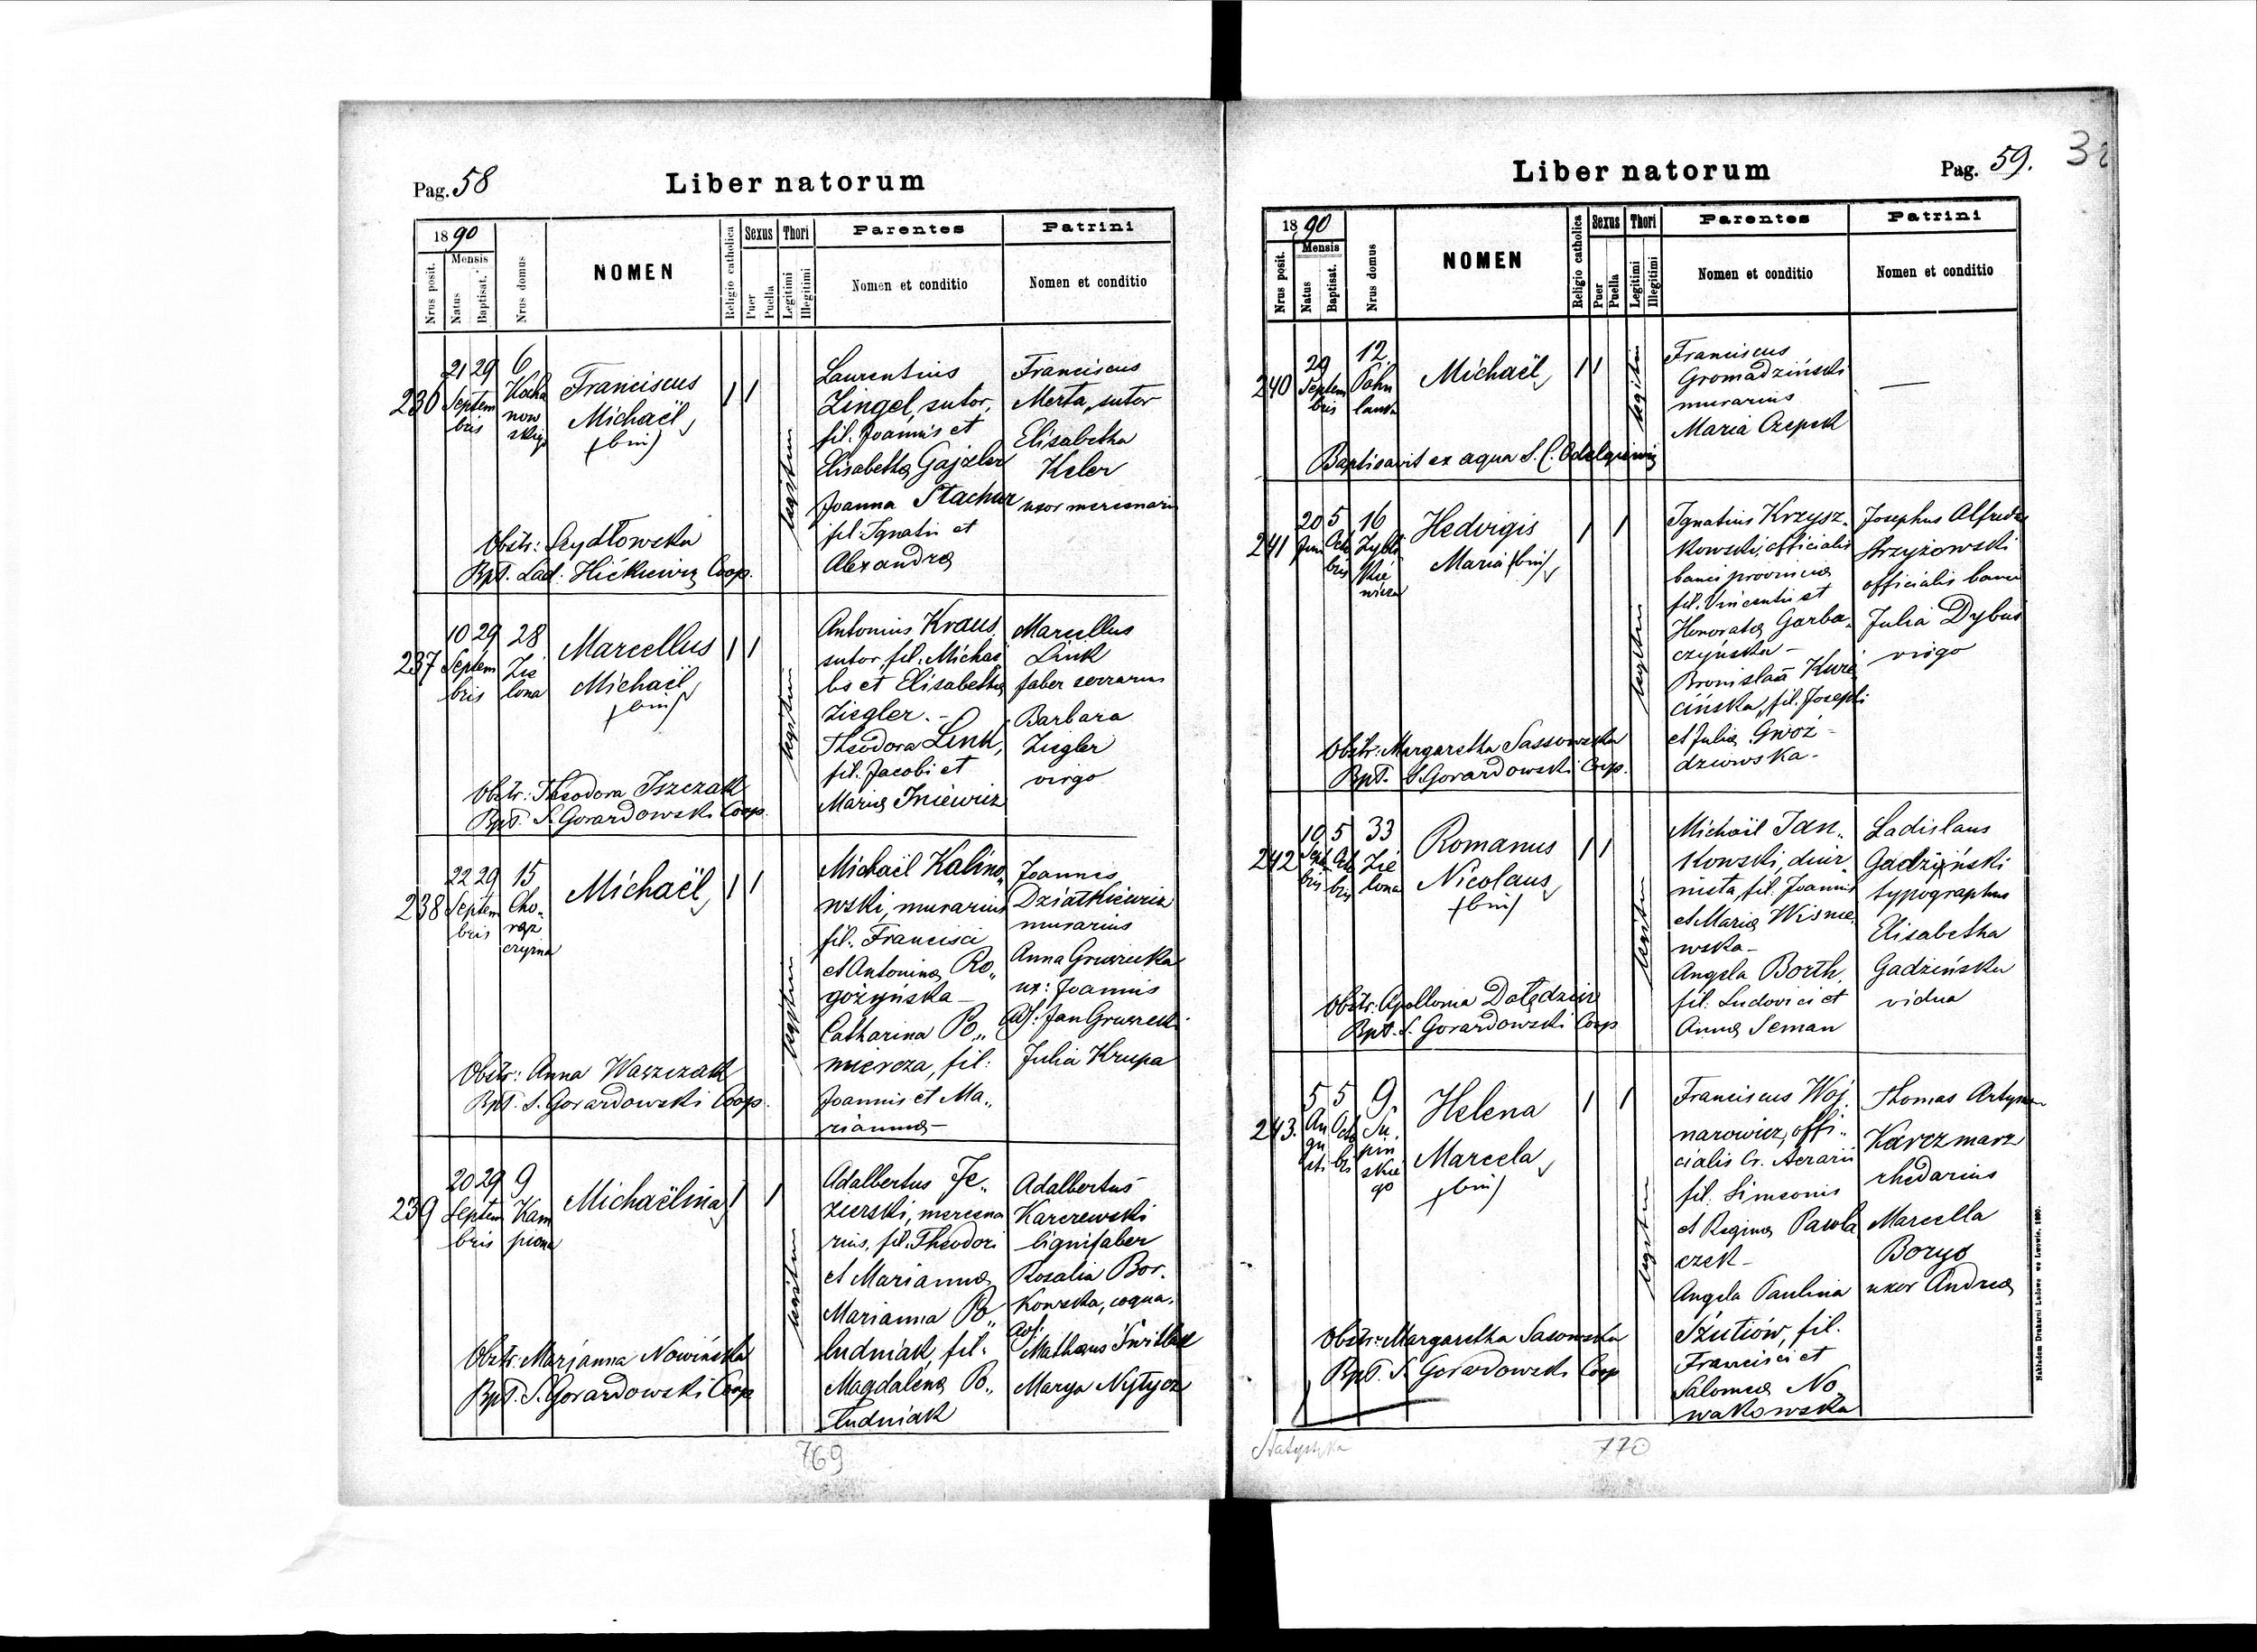 Pag. 58
Liber natorum
1890
Nrus posit.
Mensis
Natus
Baptisat.
Nrus domus
NOMEN
Religio catholica
Sexus
Puer
Puella
Thori
Legitimi
Illegitimi
Parentes
Nomen et conditio
Patrini
Nomen et conditio
236
21 29
Septem
bris
6
Kocha
now
skiego
Franciscus
Michaël
(bin)
legitimi
Laurentius
Zingel, sutor,
fil. Joannis et
Elisabetha Gajzler
Joanna Stachur
fil. Ignatii et
Alexandra
Franciscus
Merta, sutor
Elisabetha
Keler
uxor mercenarii
Obstr: Szydłowska
Bpt. Lad. Hickiewicz Coop.
237
10 29
Septem
bris
28
Zie
lona
Marcellus
Michaël
(bin)
legitimi
Antonius Kraus
sutor, fil. Michaë
lis et Elisabetha
Ziegler. -
Theodora Link,
fil. Jacobi et
Maria Iniewicz
Marcellus
Link
faber serrarius
Barbara
Ziegler
virgo
Obstr: Theodora Iszczak
Bpt. S. Gorardowski Coop.
238
22 29
Septem
bris
15
Cho„
rąż
czyzna
Michaël
legitimi
Michaël Kalino„
wski, murarius
fil. Francisci
et Antonina Ro„
gożyńska -
Catharina Po„
miercza, fil:
Joannis et Ma„
rianna -
Joannes
Dziatkiewicz
murarius
Anna Gruszecka
ux: Joannis
Ass: Jan Gruszecki
Julia Krupa
Obstr: Anna Waszczak
Bpt. S. Gorardowski Coop.
239
20 29
Septem
bris
9
Kam
piana
Michaëlina
legitimi
Adalbertus Je„
zierski, mercena
rius, fil. Theodori
et Marianna
Marianna Po„
łudniak, fil.
Magdalena Po„
łudniak
Adalbertus
Karczewski
lignifaber
Rosalia Bor.
kowska, coqua.
Ass:
Marya Nytycz
Obstr. Marjanna Nowińska
Bpt. S. Gorardowski Coop
769
Liber natorum
Pag. 59.
1890
Nrus posit.
Mensis
Natus
Baptisat.
Nrus domus
NOMEN
Religio catholica
Sexus
Puer
Puella
Thori
Legitimi
Illegitimi
Parentes
Nomen et conditio
Patrini
Nomen et conditio
240
29
Septem
bris
12.
Michaël
legitimi
Franciscus
Gromadziński
murarius
Maria Czepek
—
Baptisavit ex aqua S. C. Odelgiewicz
241
20 5
Juni Octo
bris
16
Zybli
kie
wicza
Hedvigis
Maria (bin)
legitimi
Ignatius Krzysz„
kowski, officialis
banci provincia
fil. Vincentii et
Honorata Garba„
czyńska -
Bronislaa Kurci
cińska, fil. Josephi
et Julia Gwoź -
dziowska -
Josephus Alfredus
Strzyżowski
officialis banci
Julia Dybus
virgo
Obstr: Margaretha Sassowska
Bpt. S. Gorardowski Coop.
242
10 5
Sept Oct
bris bris
33
Zie
lona
Romanus
Nicolaus
(bin)
legitimi
Michaël Jan„
kowski, diur
nista, fil. Joannis
et Maria Wisnie
wska -
Angela Borth,
fil. Ludovici et
Anna Seman
Ladislaus
Gadziński
typographus
Elisabetha
Gadzińska
vidua
Obstr. Apollonia Dolędzin
Bpt. S. Gorardowski Coop
243.
5 5
Au Octo
gu
sti bris
9.
Su.
piń
skie
go
Helena
Marcela
(bin)
legitimi
Franciscus Woj
narowicz, offi„
cialis Cr. Aerarii
fil. Simeonis
et Regina Pawla
czek -
Angela Paulina
Szutiów, fil.
Francisci et
Salomea No„
wakowska
Thomas Artymn
Karczmarz
rhedarius
Marcella
Borys
uxor Andrea
Obstr: Margaretha Sasowska
Bpt. S. Gorardowski Coop
Nakładem Drukarni Ludowej we Lwowie. 1890.
770